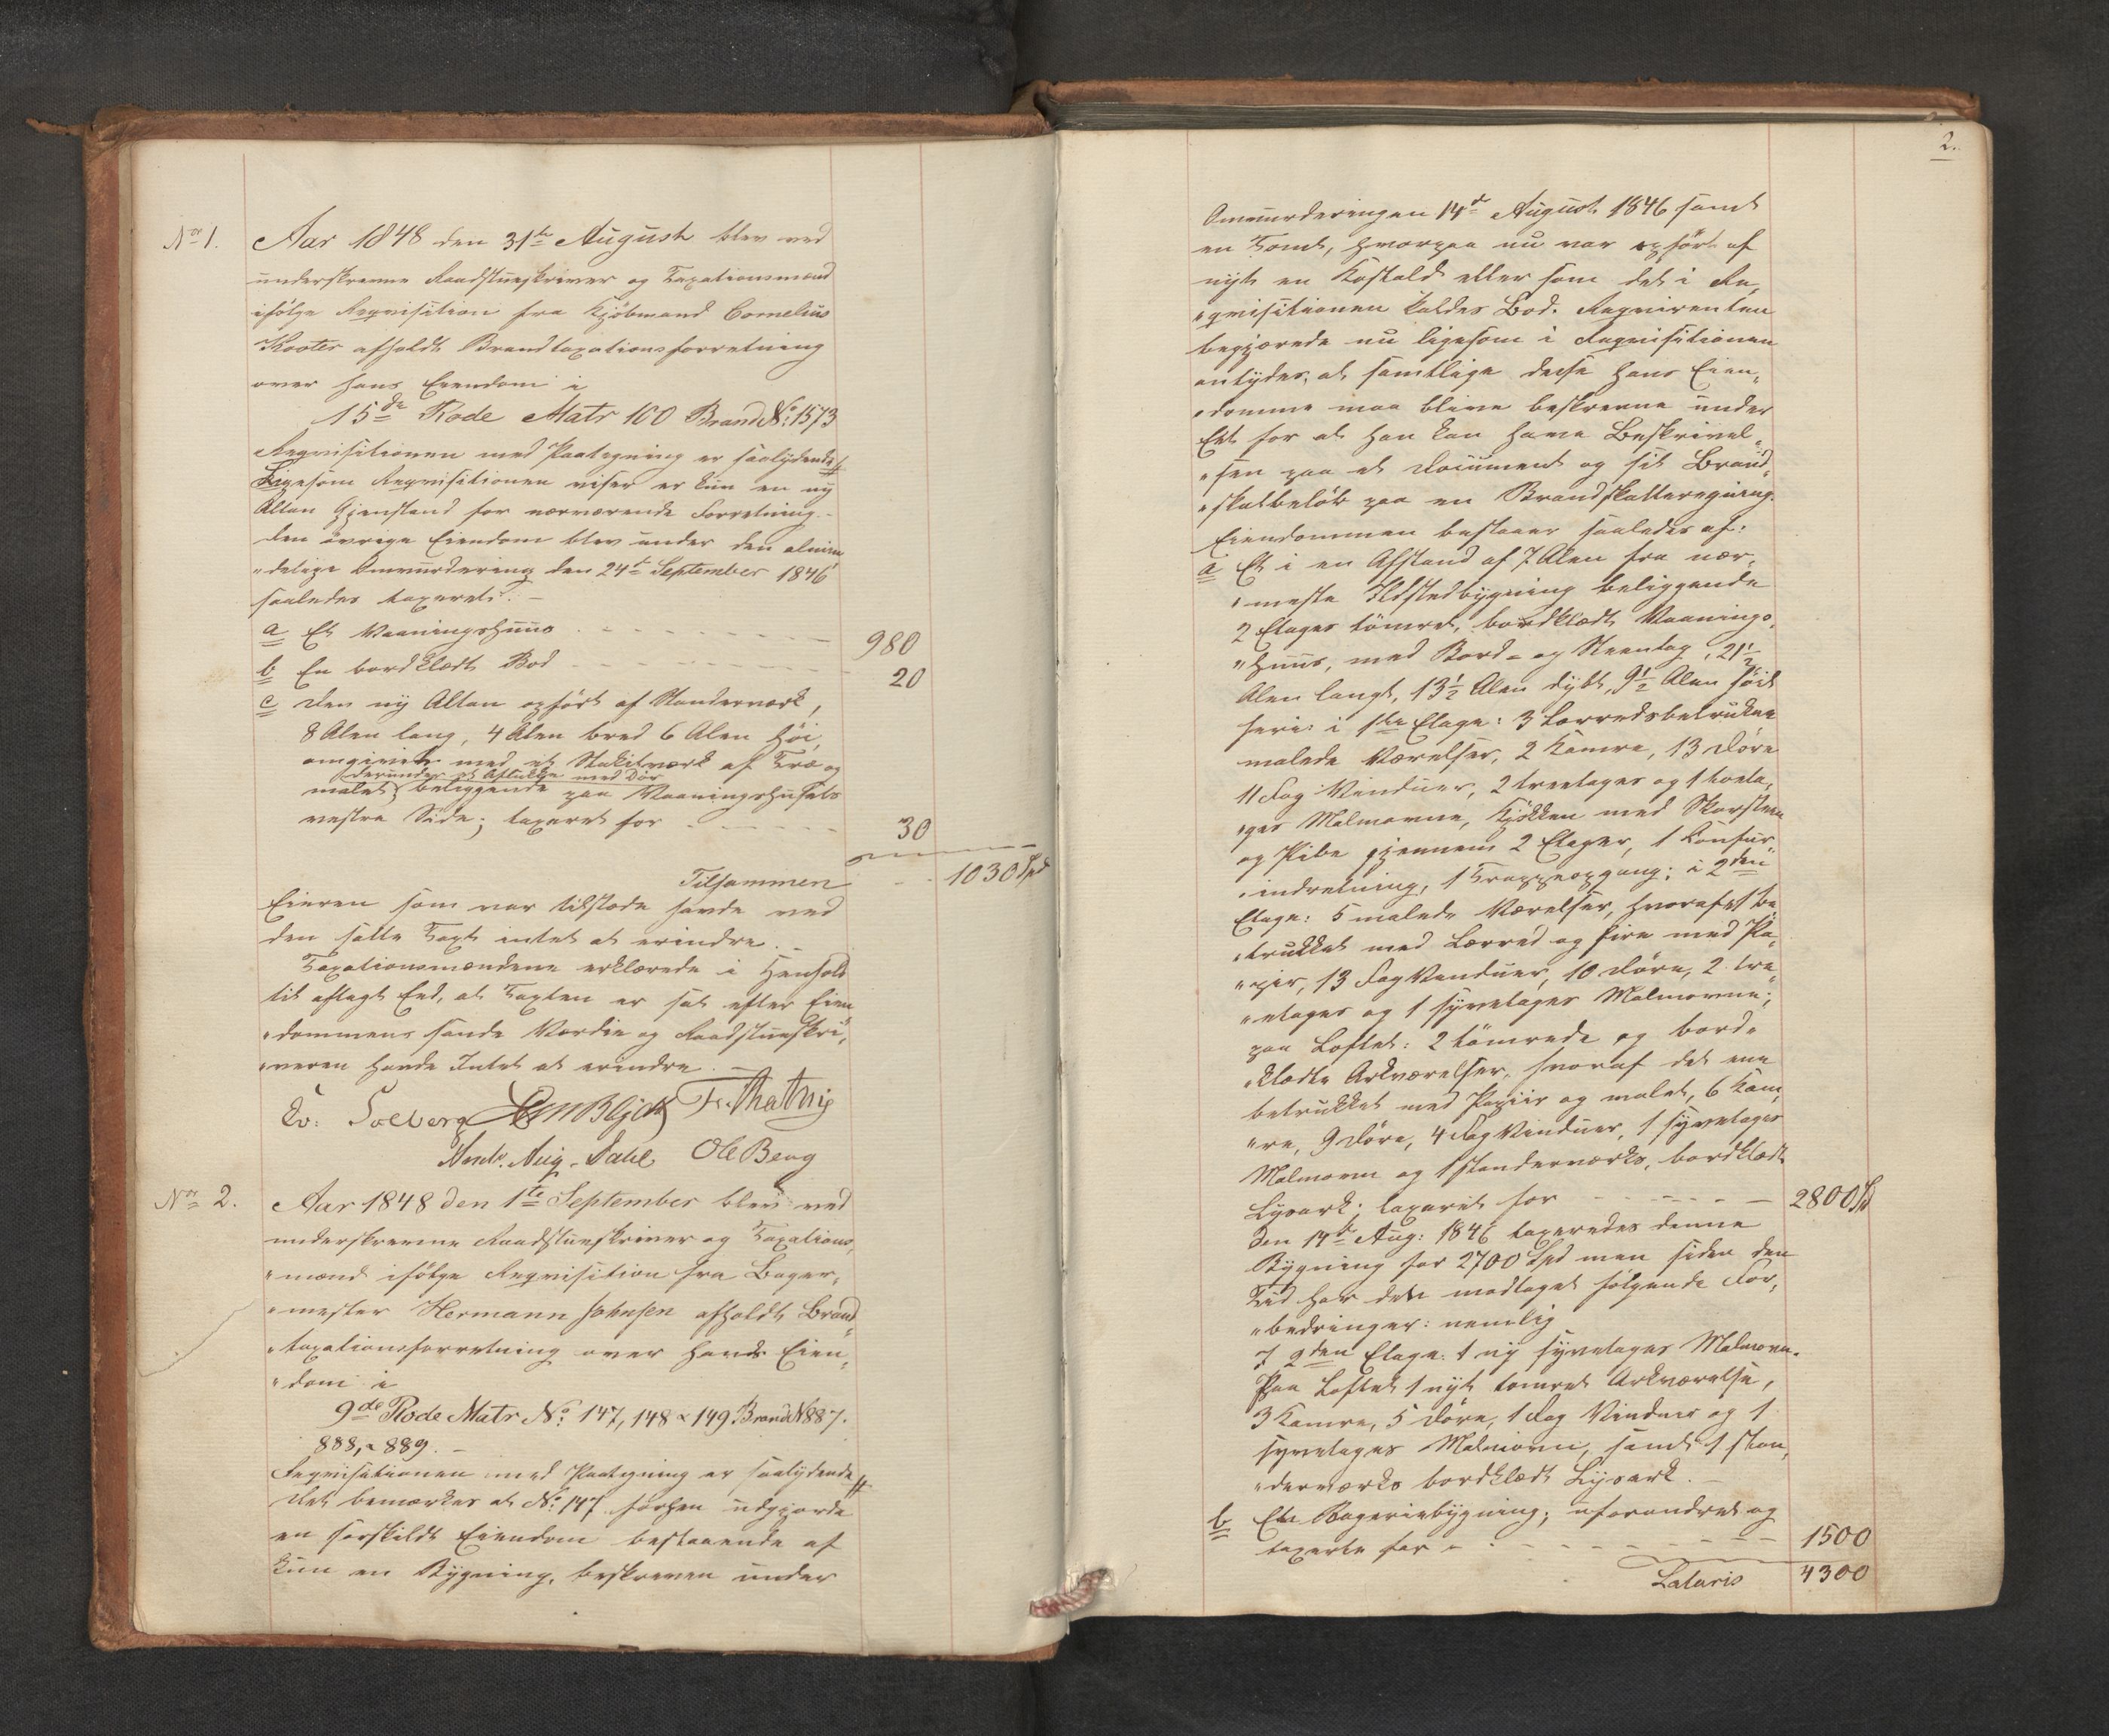 No 1. Aar 1848 den 31te August blev ved
underskrevne Raadstueskriver og Taxationsmænd
ifölge Reqvisition fra Kjöbmand Cornelius
Kooter afholdt Brandtaxationsforretning
over hans Eiendom i
15de Rode Matr 100 Brand No: 1573
Reqvisitionen med Paategning er saalydende #
Ligesom Reqvisitionen viser er kun en ny
Altan Gjenstand for nærværende Forretning.-
Den övrige Eiendom blev under den almin
"delige Omvurdering den 24de September 1846
saaledes taxeret: -
a Et Vaaningshuus 980
b En bordklædt Bod 20
c Den ny Altan opfört af Stenderværk,
8 Alen lang, 4 Alen bred 6 Alen höi,
omgivet med et Stakitværk af Træ og
derunder et Aflukke med Dör
malet, beliggende paa Vaaningshusets
vestre Side; taxeret for 30
Tilsammen 1030 Spd
Eieren som var tilstæde havde ved
den satte Taxt intet at erindre. -
Taxationsmændene erklærede i Henhold
til aflagt Eed, at Taxten er sat efter Eien
"dommens sande Værdie og Raadstueskri"
"veren havde Intet at erindre. -
Solberg Fr.
Andr. Aug. Dahl Ole Berg
No 2. Aar 1848 den 1te September blev ved
underskrevne Raadstueskriver og Taxations"
"mænd ifölge Reqvisition fra Bager"
"mester Hermann Johnsen afholdt Brand"
"taxationsforretning over hans Eien"
"dom i
9de Rode Matr No: 147, 148 & 149 Brand No 887.
888, & 889. -
Reqvisitionen med Paategning er saalydende #
Det bemærkes at No: 147 forhen udgjorde
en særskildt Eiendom bestaaende af
kun en Bygning, beskreven under
2.
Omvurderingen 14de August 1846 samt
en Tomt, hvorpaa nu var opfört af
nyt en Kostald eller som det i Re"
"qvisitionen kaldes Bod. Reqvirenten
begjærede nu ligesom i Reqvisitionen
antydes, at samtlige disse hans Eien"
"domme maa blive beskrevne under
Et for at han kan have Beskrivel"
"sen paa et Document og sit Brand"
"skatbelöb paa en Brandskatteregning.
Eiendommen bestaaer saaledes af:
a Et i en Afstand af 7 Alen fra nær"
"meste Ildstedbygning beliggende
2 Etages tömret, bordklædt Vaanings"
"huus, med Bord- og Steentag, 21½
Alen langt, 13½ Alen dybt, 9½ Alen höit
heri: i 1ste Etage: 3 Lærredsbetrukne
malede Værelser, 2 Kamre, 13 Döre
11 Fag Vinduer, 2 treetages og 1 toeta"
"ges Malmovne, Kjökken med Skorsteen
og Pibe gjennem 2 Etager, 1 
"indretning, 1 Trappeopgang; i 2den
Etage: 5 malede Værelser, hvoraf et be"
"trukket med Lærred og fire med Pa"
"pir, 13 Fag Vinduer, 10 Döre, 2 tre"
"etages og 1 syvetages Malmovne;
paa Loftet: 2 tömrede og bord"
"klædte Arkværelser, hvoraf det ene
betrukket med Papiir og malet, 6 Kam"
"re, 9 Döre, 4 Fag Vinduer, 1 syvetages
Malmovn og 1 stenderværks, bordklædt
Lysark; taxeret for 2800 Spd
Den 14de Aug: 1846 taxeredes denne
Bygning for 2700 Spd men siden den
Tid har den modtaget fölgende For"
"bedringer: nemlig
I 2den Etage: 1 ny syvetages Malmovn.
Paa Loftet 1 nyt tömret Arkværelse,
3 Kamre, 5 Döre, 1 Fag Vinduer og 1
syvetages Malmovn, samt 1 sten"
"derværks bordklædt Lysark. -
b En Bageriebygning; uforandret og
taxeret for 1500
Lateris 4300